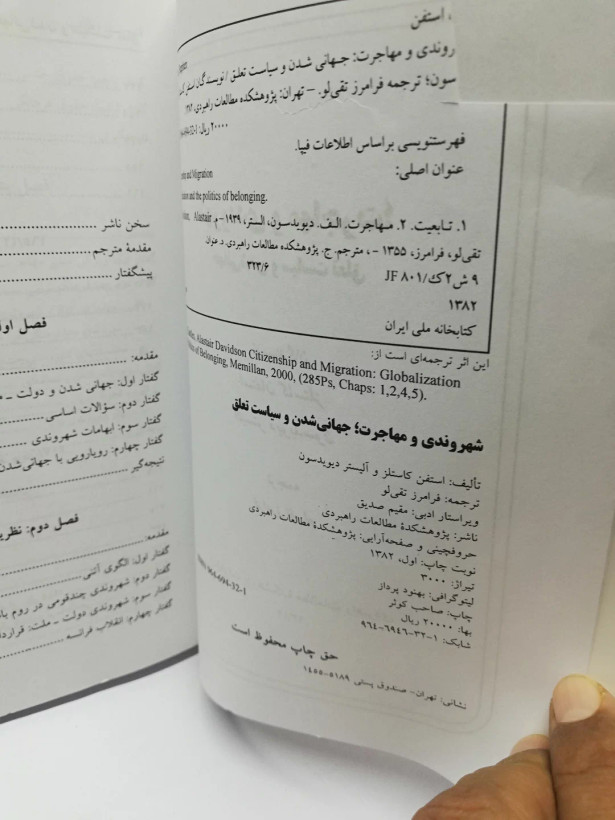 ، استفن
روندی و مهاجرت: جهانی شدن و سیاست تعلق / نویسندگان استفن
سون؛ ترجمه فرامرز تقی‌لو. – تهران: پژوهشکده مطالعات راهبردی، ۱۳۸۲
۲۰۰۰۰ ریال:
فهرستنویسی براساس اطلاعات فیپا.
عنوان اصلی:
and Migration
and the politics of belonging.
۱. تابعیت. ۲. مهاجرت. الف. دیویدسون، الستر، ۱۹۳۹ - م. Alastair
تقی‌لو، فرامرز، ۱۳۵۵ - ، مترجم. ج. پژوهشکده مطالعات راهبردی. د. عنوان
۹ ش ۲ک/ ۸۰۱ JF ۳۲۳/۶
۱۳۸۲
کتابخانه ملی ایران
این اثر ترجمه‌ای است از:
Alastair Davidson Citizenship and Migration: Globalization
of Belonging, Memillan, 2000, (285Ps, Chaps: 1,2,4,5).
شهروندی و مهاجرت؛ جهانی‌شدن و سیاست تعلق
تألیف: استفن کاستلز و آلیستر دیویدسون
ترجمه: فرامرز تقی‌لو
ویراستار ادبی: مقیم صدیق
ناشر: پژوهشکدهٔ مطالعات راهبردی
حروفچینی و صفحه‌آرایی: پژوهشکدهٔ مطالعات راهبردی
نوبت چاپ: اول، ۱۳۸۲
تیراژ: ۳۰۰۰
لیتوگرافی: بهنود پرداز
چاپ: صاحب کوثر
بها: ۲۰۰۰۰ ریال
شابک: ۱-۳۲-۶۹۴۶-۹۶۴
964-694-32-1
حق چاپ محفوظ است
نشانی: تهران- صندوق پستی ۵۱۸۹-۱۴۵۵
سخن ناشر
مقدمهٔ مترجم
پیشگفتار
فصل اول
مقدمه:
گفتار اول: جهانی شدن و دولت ـ
گفتار دوم: سؤالات اساسی
گفتار سوم: ابهامات شهروندی
گفتار چهارم: رویارویی با جهانی‌شدن
نتیجه‌گیر
فصل دوم: نظری
مقدمه:
گفتار اول: الگوی آتنی
گفتار دوم: شهروندی چندقومی در روم با
گفتار سوم: شهروندی دولت ـ ملت: قرارداد
گفتار چهارم: انقلاب فرانسه